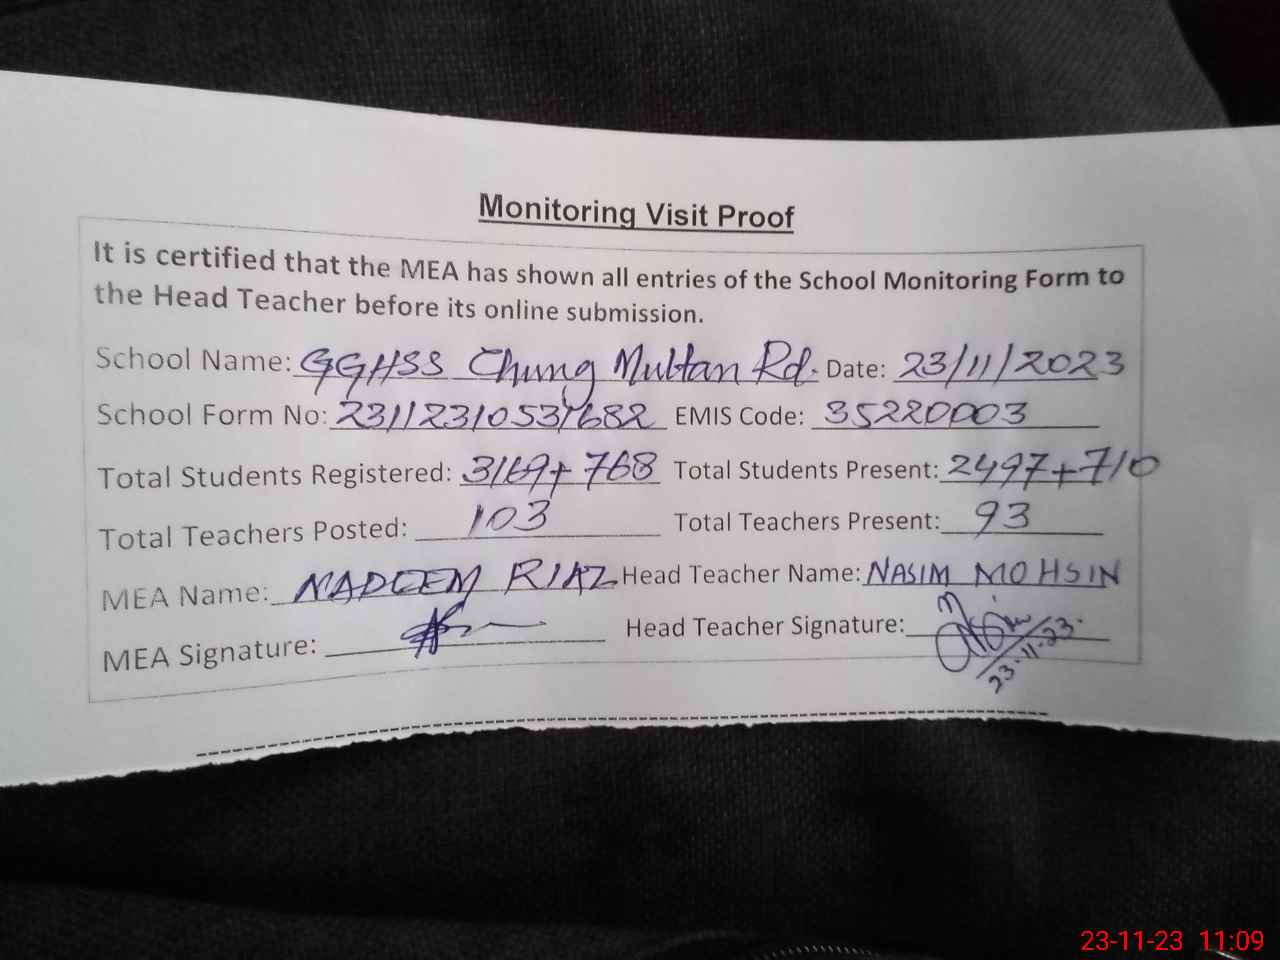 Monitoring Visit Proof
It is certified that the MEA has shown all entries of the School Monitoring Form to
the Head Teacher before its online submission.
School Name: GGHSS Chung Multan Rd. Date: 23/11/2023
School Form No: 23112310537682 EMIS Code: 35220003
Total Students Registered: 3169+768 Total Students Present: 2497+710
Total Teachers Posted: 103 Total Teachers Present: 93
MEA Name: NADEEM RIAZ Head Teacher Name: NASIM MOHSIN
MEA Signature: Head Teacher Signature:
23-11-23.
23-11-23 11:09